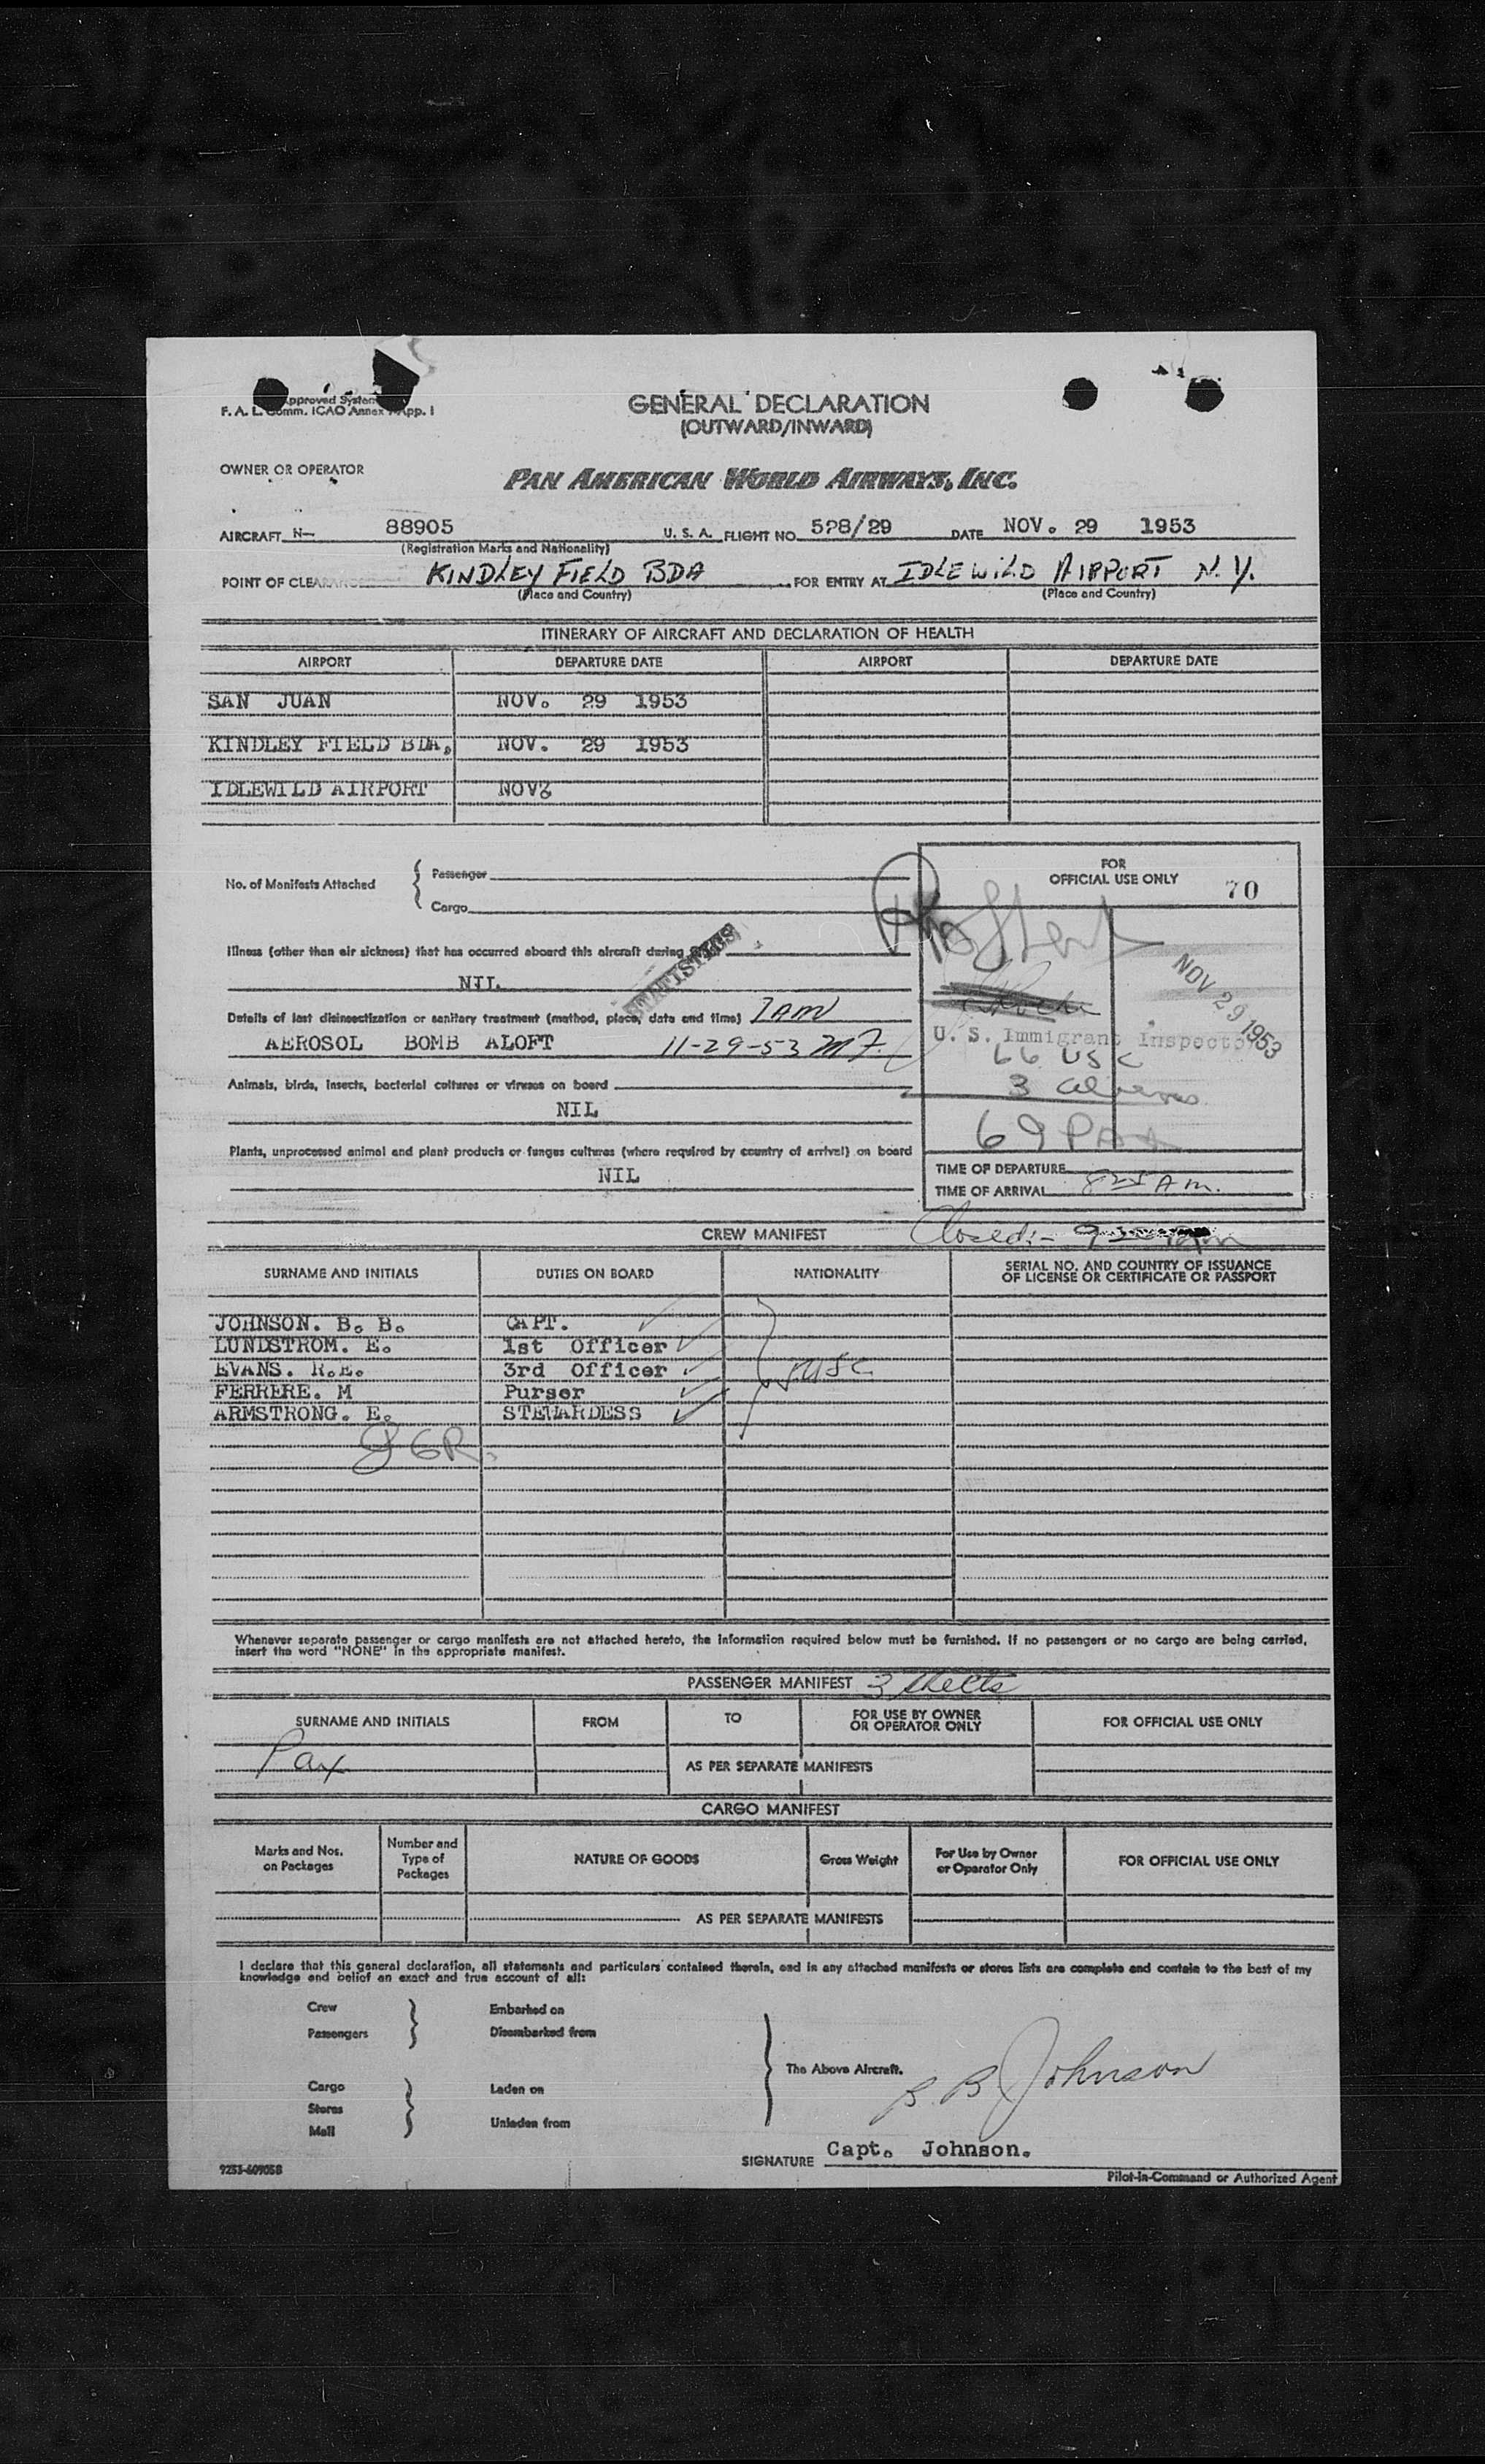 Approved System
F. A. L. Comm. ICAO Annex App. 1
GENERAL DECLARATION
(OUTWARD/INWARD)
OWNER OR OPERATOR
PAN AMERICAN WORLD AIRWAYS, INC.
AIRCRAFT N- 88905 U. S. A. FLIGHT NO. 528/29 DATE NOV. 29 1953
(Registration Marks and Nationality)
POINT OF CLEARANCE KINDLEY FIELD BDA FOR ENTRY AT IDLEWILD AIRPORT N.Y.
(Place and Country) (Place and Country)
ITINERARY OF AIRCRAFT AND DECLARATION OF HEALTH
AIRPORT DEPARTURE DATE AIRPORT DEPARTURE DATE
SAN JUAN NOV. 29 1953
KINDLEY FIELD BDA, NOV. 29 1953
IDLEWILD AIRPORT NOV%
No. of Manifests Attached
Passenger
Cargo
FOR
OFFICIAL USE ONLY 70
Illness (other than air sickness) that has occurred aboard this aircraft during
STATISTICS
NIL
NOV 29 1953
Details of last disinsectization or sanitary treatment (method, place, date and time) 7AM
AEROSOL BOMB ALOFT 11-29-53 M7.
U. S. Immigrant Inspector
66 USC
3 aliens
69 PAX
Animals, birds, insects, bacterial cultures or viruses on board
NIL
Plants, unprocessed animal and plant products or fungus cultures (where required by country of arrival) on board
NIL
TIME OF DEPARTURE
TIME OF ARRIVAL 825 AM.
CREW MANIFEST Closed:-
SURNAME AND INITIALS DUTIES ON BOARD NATIONALITY SERIAL NO. AND COUNTRY OF ISSUANCE
OF LICENSE OR CERTIFICATE OR PASSPORT
JOHNSON. B. B. CAPT.
LUNDSTROM. E. 1st Officer
EVANS. R.E. 3rd Officer 5 USC
FERRERE. M Purser
ARMSTRONG. E. STEWARDESS
Whenever separate passenger or cargo manifests are not attached hereto, the information required below must be furnished. If no passengers or no cargo are being carried,
insert the word "NONE" in the appropriate manifest.
PASSENGER MANIFEST 3 sheets
SURNAME AND INITIALS FROM TO FOR USE BY OWNER
OR OPERATOR ONLY FOR OFFICIAL USE ONLY
Pax
AS PER SEPARATE MANIFESTS
CARGO MANIFEST
Marks and Nos.
on Packages
Number and
Type of
Packages
NATURE OF GOODS
Gross Weight
For Use by Owner
or Operator Only
FOR OFFICIAL USE ONLY
AS PER SEPARATE MANIFESTS
I declare that this general declaration, all statements and particulars contained therein, and in any attached manifests or stores lists are complete and contain to the best of my
knowledge and belief an exact and true account of all:
Crew Embarked on
Passengers Disembarked from
The Above Aircraft.
B B Johnson
Cargo Laden on
Stores
Mail Unladen from
SIGNATURE Capt. Johnson.
9253-609058
Pilot-in-Command or Authorized Agent